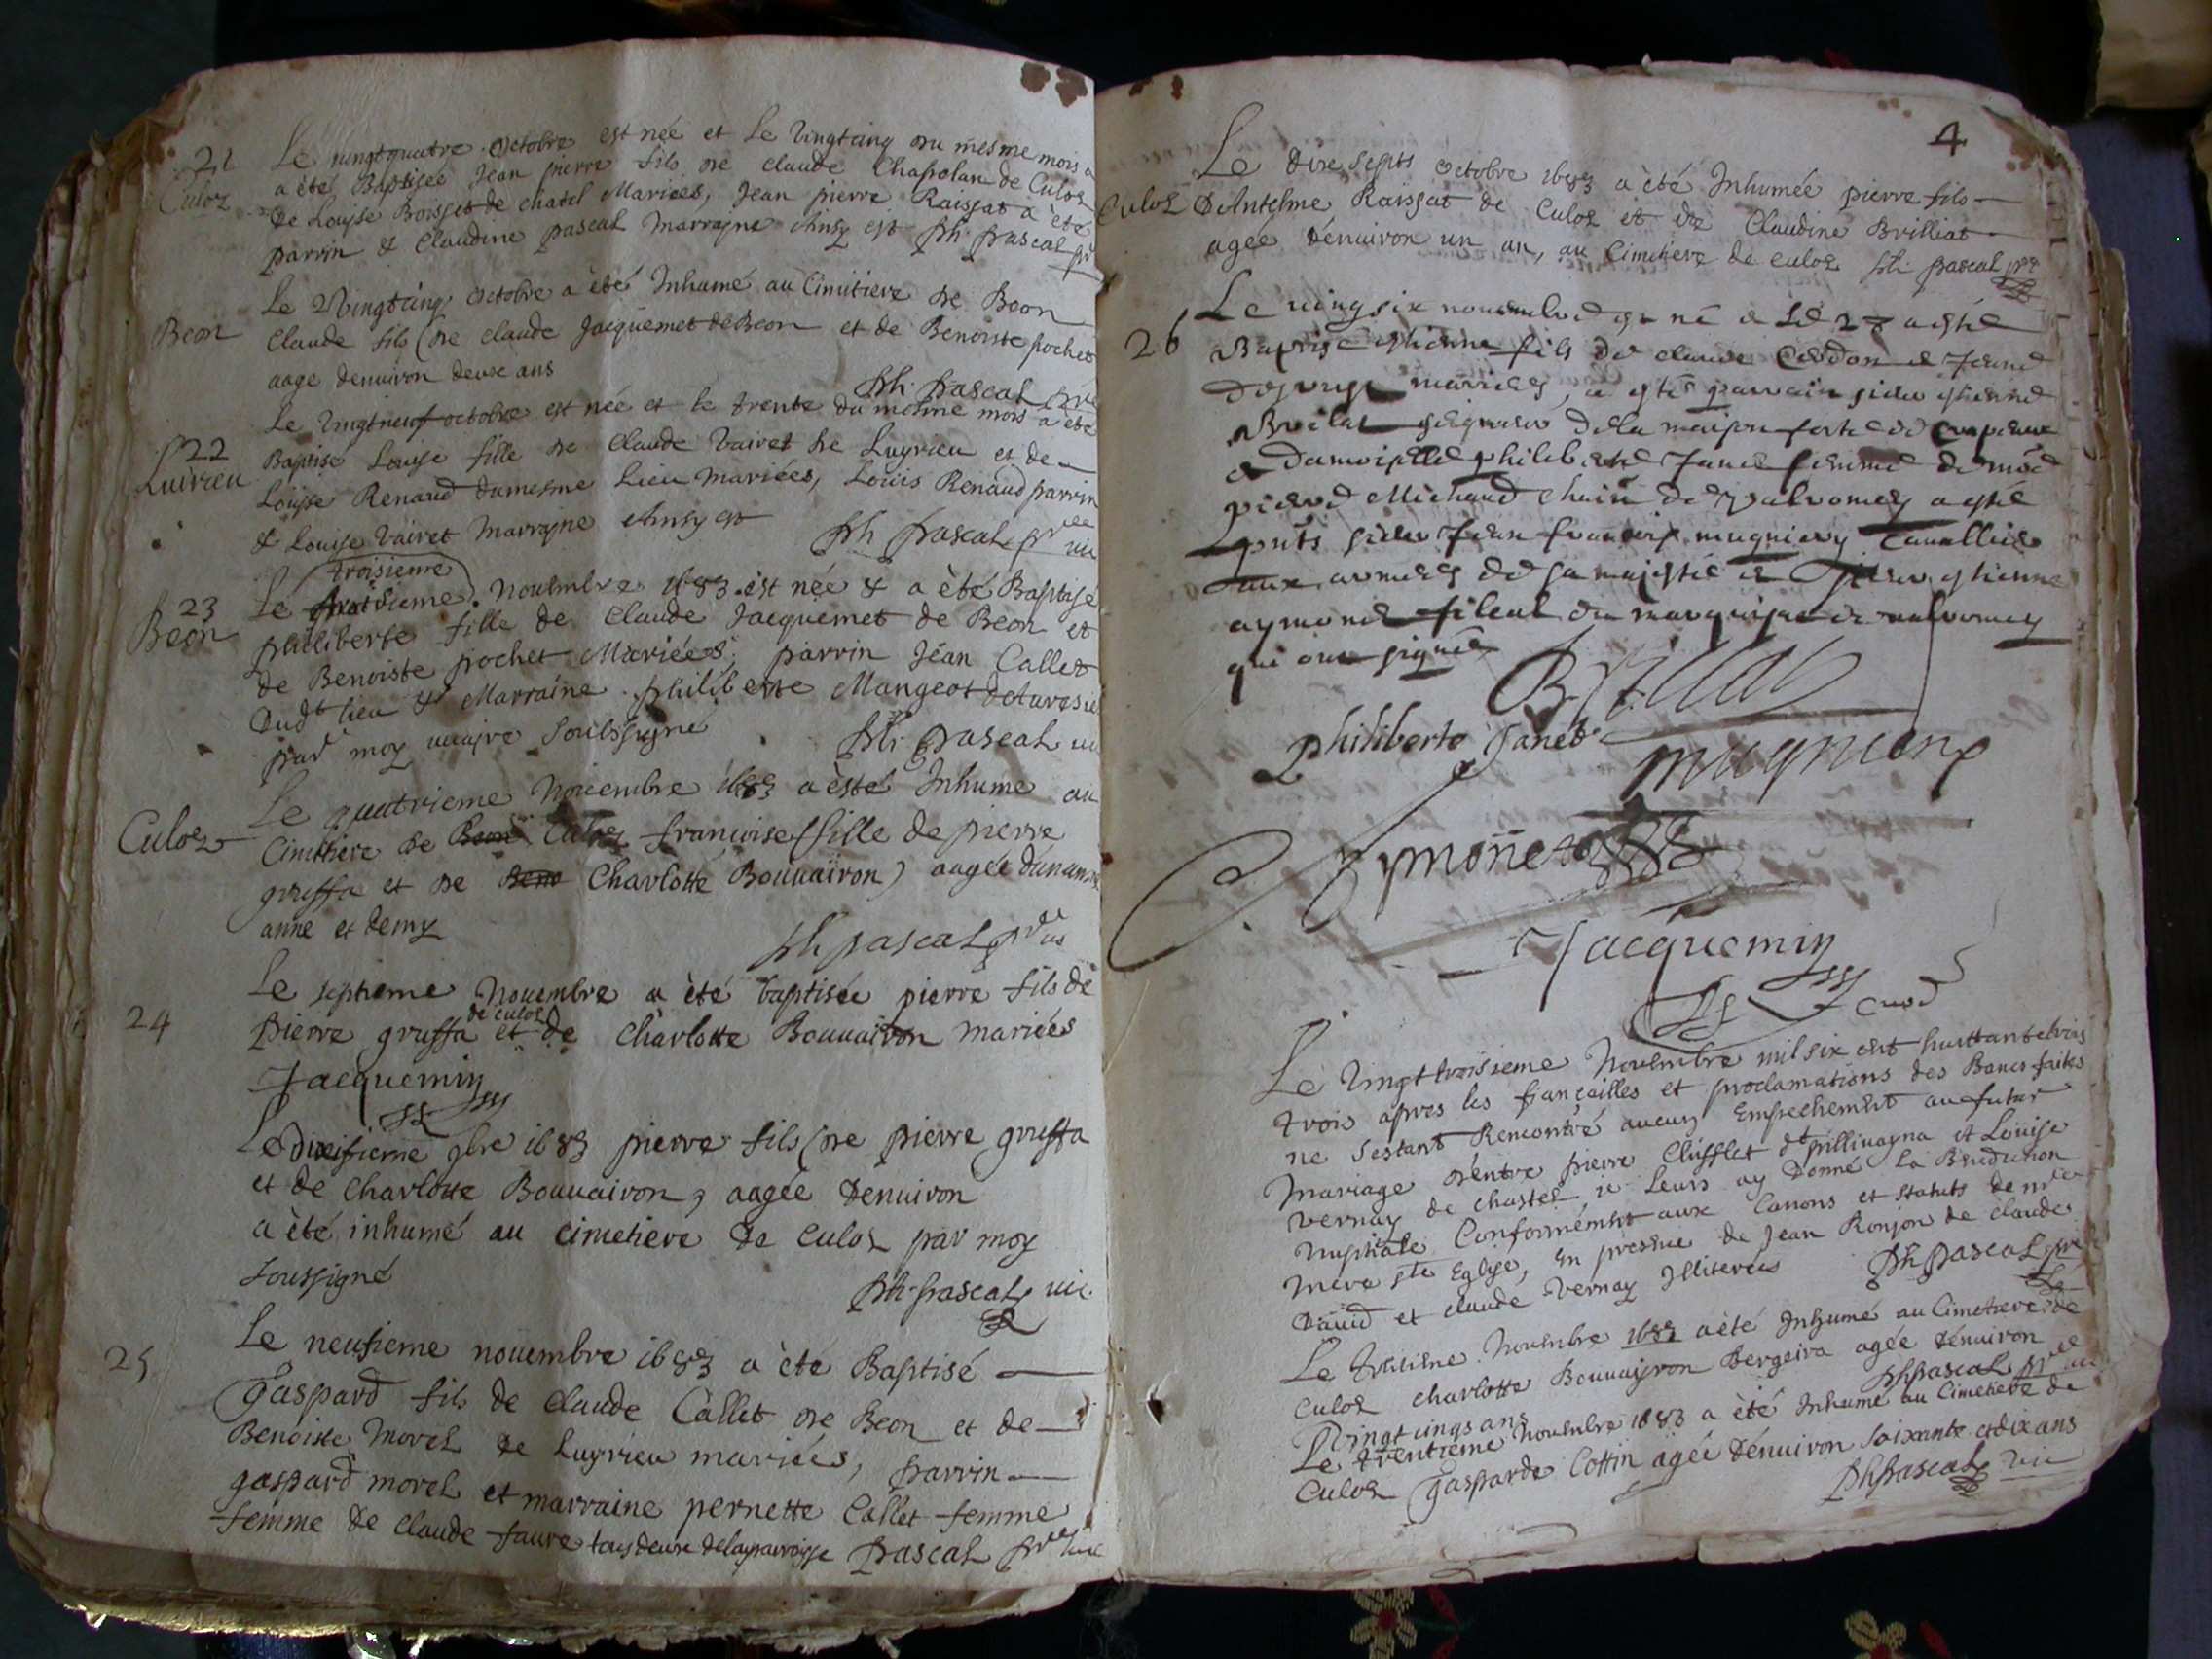 21
Culoz
Le vingtquatre octobre est née et Le Vingtcinq du mesme mois a
a èté Baptisée Jean pierre fils de claude Chapolan de Culoz
de Louise Boisset de chatel Mariées, Jean pierre Raissat a èté
parrin & Claudine pascal Marrayne Ainsy est ph. pascal
Beon
Le Vingtcinq octobre a èté Inhumé au Cimitiere de Beon
Claude fils de claude Jacquemet de Beon et de Benoiste pochet
aage denuiron deux ans
ph. pascal
22
Luirieu
Le Vingtneuf octobre est née et le trente du mesme mois a èté
Baptisé Louise fille de Claude Vairet de Luyrieu et de
Louise Renaud dumesme Lieu Mariées, Louis Renaud parrin
& Louise Vairet Marrayne Ainsy est
ph pascal
troisieme
23
Beon
Le noulmbre 1683 est née & a èté Baptisé
philiberte fille de Claude Jacquemet de Beon et
de Benoiste pochet Mariées, parrin Jéan Callet
Dud^t lieu & Marraine philiberte Mangeot
par moy soubssigne
ph. pascal
Culoz
Le quatrieme Nouembre 1683 a èsté Inhume au
Cimitiere de Beon Culoz francoise fille de pierre
gruffa et de Charlotte Bouuaïron aagée dun an
anne et demy
ph pascal
24
Le septieme Nouembre a èté baptisée pierre fils de
de culoz
Pierre gruffa et de Charlotte Bouuairon mariées
Jacquemin
Le 9bre 1683 pierre fils de pierre gruffa
et de Charlotte Bouuairon, aagée denuiron
a èté inhumé au cimetiere de Culoz par moy
soussigné
ph. pascal vic.
25
Le neufieme nouembre 1683 a èté Baptisé
Gaspard fils de Claude Callet de Beon et de
Benoiste Morel de Luyrieu mariées, parrin
gaspard morel et marraine pernette Callet femme
femme de claude faure tous deux delaparroisse pascal
4
Culoz
Le dixe septs octobre 1683 a èté Inhumée pierre fils
D'Antelme Raissat de Culoz et de Claudine Brilliat
agée dénuiron un an, au Cimetiere de culoz ph pascal
26
Le vingsix nouembre est né et Le 27 a esté
Baptisé estienne fils de claude Cerdon et Jeanne
mariées, a esté parrain sieur estienne
Brillat seigneur dela maison forte de
et Damoiselle philiberte Janet femme de
pierre Michaud de Valromey a esté
sieur Jean francois mugniery
aux armees de sa majesté et sieur estienne
aymonet fiscal du marquisat de valromey
qui ont signés
Brillat
Philiberte Janet
mugniery
Aymonet
Jacquemin
curé
Le Vingt troisieme Nouembre mil six cent huittante trois
trois apres les fiançailles et proclamations des Bancs faites
ne sestant Rencontré aucun Empechement au futur
Mariage dentre pierre Clufflet et Louise
Vernay de chastel ie Leurs ay Donné La Benediction
Nuptiale Conformément aux Canons et statuts de n^re
mere s^te Eglise, En presence de Jean Ronjon de claude
David et claude Vernay Illiterées ph pascal
Le Nouembre 1683 a èté Inhumé au Cimetiere de
Culoz Charlotte Bouuayron Bergeira agée dénuiron
Vingtcinqs ans
ph pascal
Le trentieme Nouembre 1683 a èté Inhumé au Cimetiere de
Culoz gasparde Cottin agée dénuiron soixante et dix ans
ph pascal vic